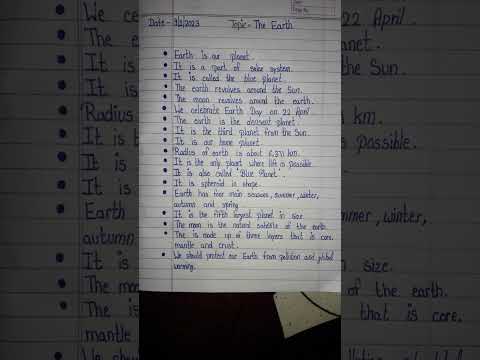 Date - 3/2/2023 Topic - The Earth
Earth is our planet.
It is a part of solar system.
It is called the blue planet.
The earth revolves around the Sun.
The moon revolves around the earth.
We celebrate Earth Day on 22 April.
The earth is the densest planet.
It is the third planet from the Sun.
It is our home planet.
Radius of earth is about 6,371 km.
It is the only planet where life is possible.
It is also called 'Blue Planet'.
It is spheroid in shape.
Earth has four main seasons, summer, winter,
autumn and spring.
It is the fifth largest planet in size.
The moon is the natural satellite of the earth.
The is made up of three layers that is core,
mantle and crust.
We should protect our Earth from pollution and global
warming.